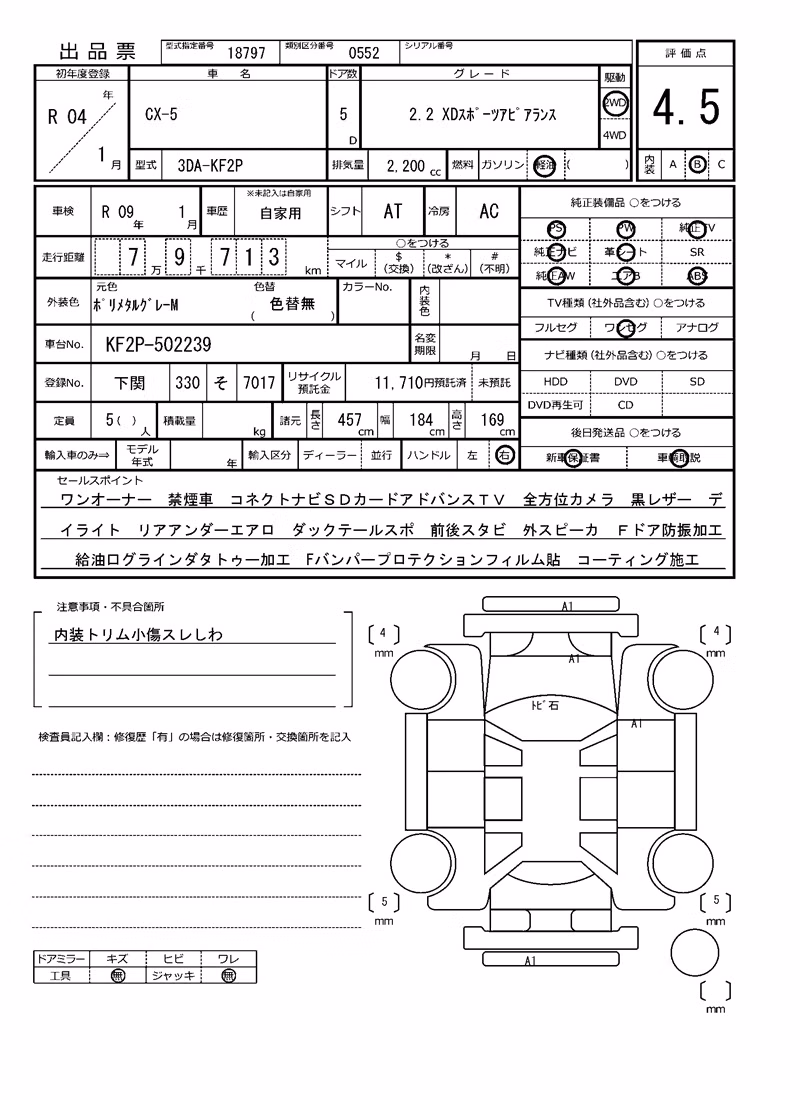 出品票 型式指定番号 18797 類別区分番号 0552 シリアル番号
評価点
4.5
内装 A B C
初年度登録 車名 ドア数 グレード 駆動
R 04 年 1 月
CX-5 5 D 2.2 XDスポーツアピアランス 2WD
4WD
型式 3DA-KF2P 排気量 2,200 cc 燃料 ガソリン 軽油 ( )
車検 R 09 年 1 月 車歴 ※未記入は自家用 自家用 シフト AT 冷房 AC
走行距離 7 万 9 千 7 1 3 km
○をつける
マイル $(交換) *(改ざん) #(不明)
外装色 元色 ポリメタルグレーM 色替 ( 色替無 ) カラーNo. 内装色
車台No. KF2P-502239 名変期限 月 日
登録No. 下関 330 そ 7017 リサイクル預託金 11,710円預託済 未預託
定員 5( ) 人 積載量 kg 諸元 長さ 457 cm 幅 184 cm 高さ 169 cm
輸入車のみ⇒ モデル年式 年 輸入区分 ディーラー 並行 ハンドル 左 右
純正装備品 ○をつける
PS PW 純正TV
純正ナビ 革シート SR
純正AW エアB ABS
TV種類(社外品含む)○をつける
フルセグ ワンセグ アナログ
ナビ種類(社外品含む)○をつける
HDD DVD SD
DVD再生可 CD
後日発送品 ○をつける
新車保証書 車輌取説
セールスポイント
ワンオーナー 禁煙車 コネクトナビSDカードアドバンスTV 全方位カメラ 黒レザー デ
イライト リアアンダーエアロ ダックテールスポ 前後スタビ 外スピーカ Fドア防振加工
給油ログラインダタトゥー加工 Fバンパープロテクションフィルム貼 コーティング施工
注意事項・不具合箇所
内装トリム小傷スレしわ
検査員記入欄:修復歴「有」の場合は修復箇所・交換箇所を記入
A1
4 mm
4 mm
A1
トビ石
A1
5 mm
5 mm
A1
mm
ドアミラー キズ ヒビ ワレ
工具 無 ジャッキ 無